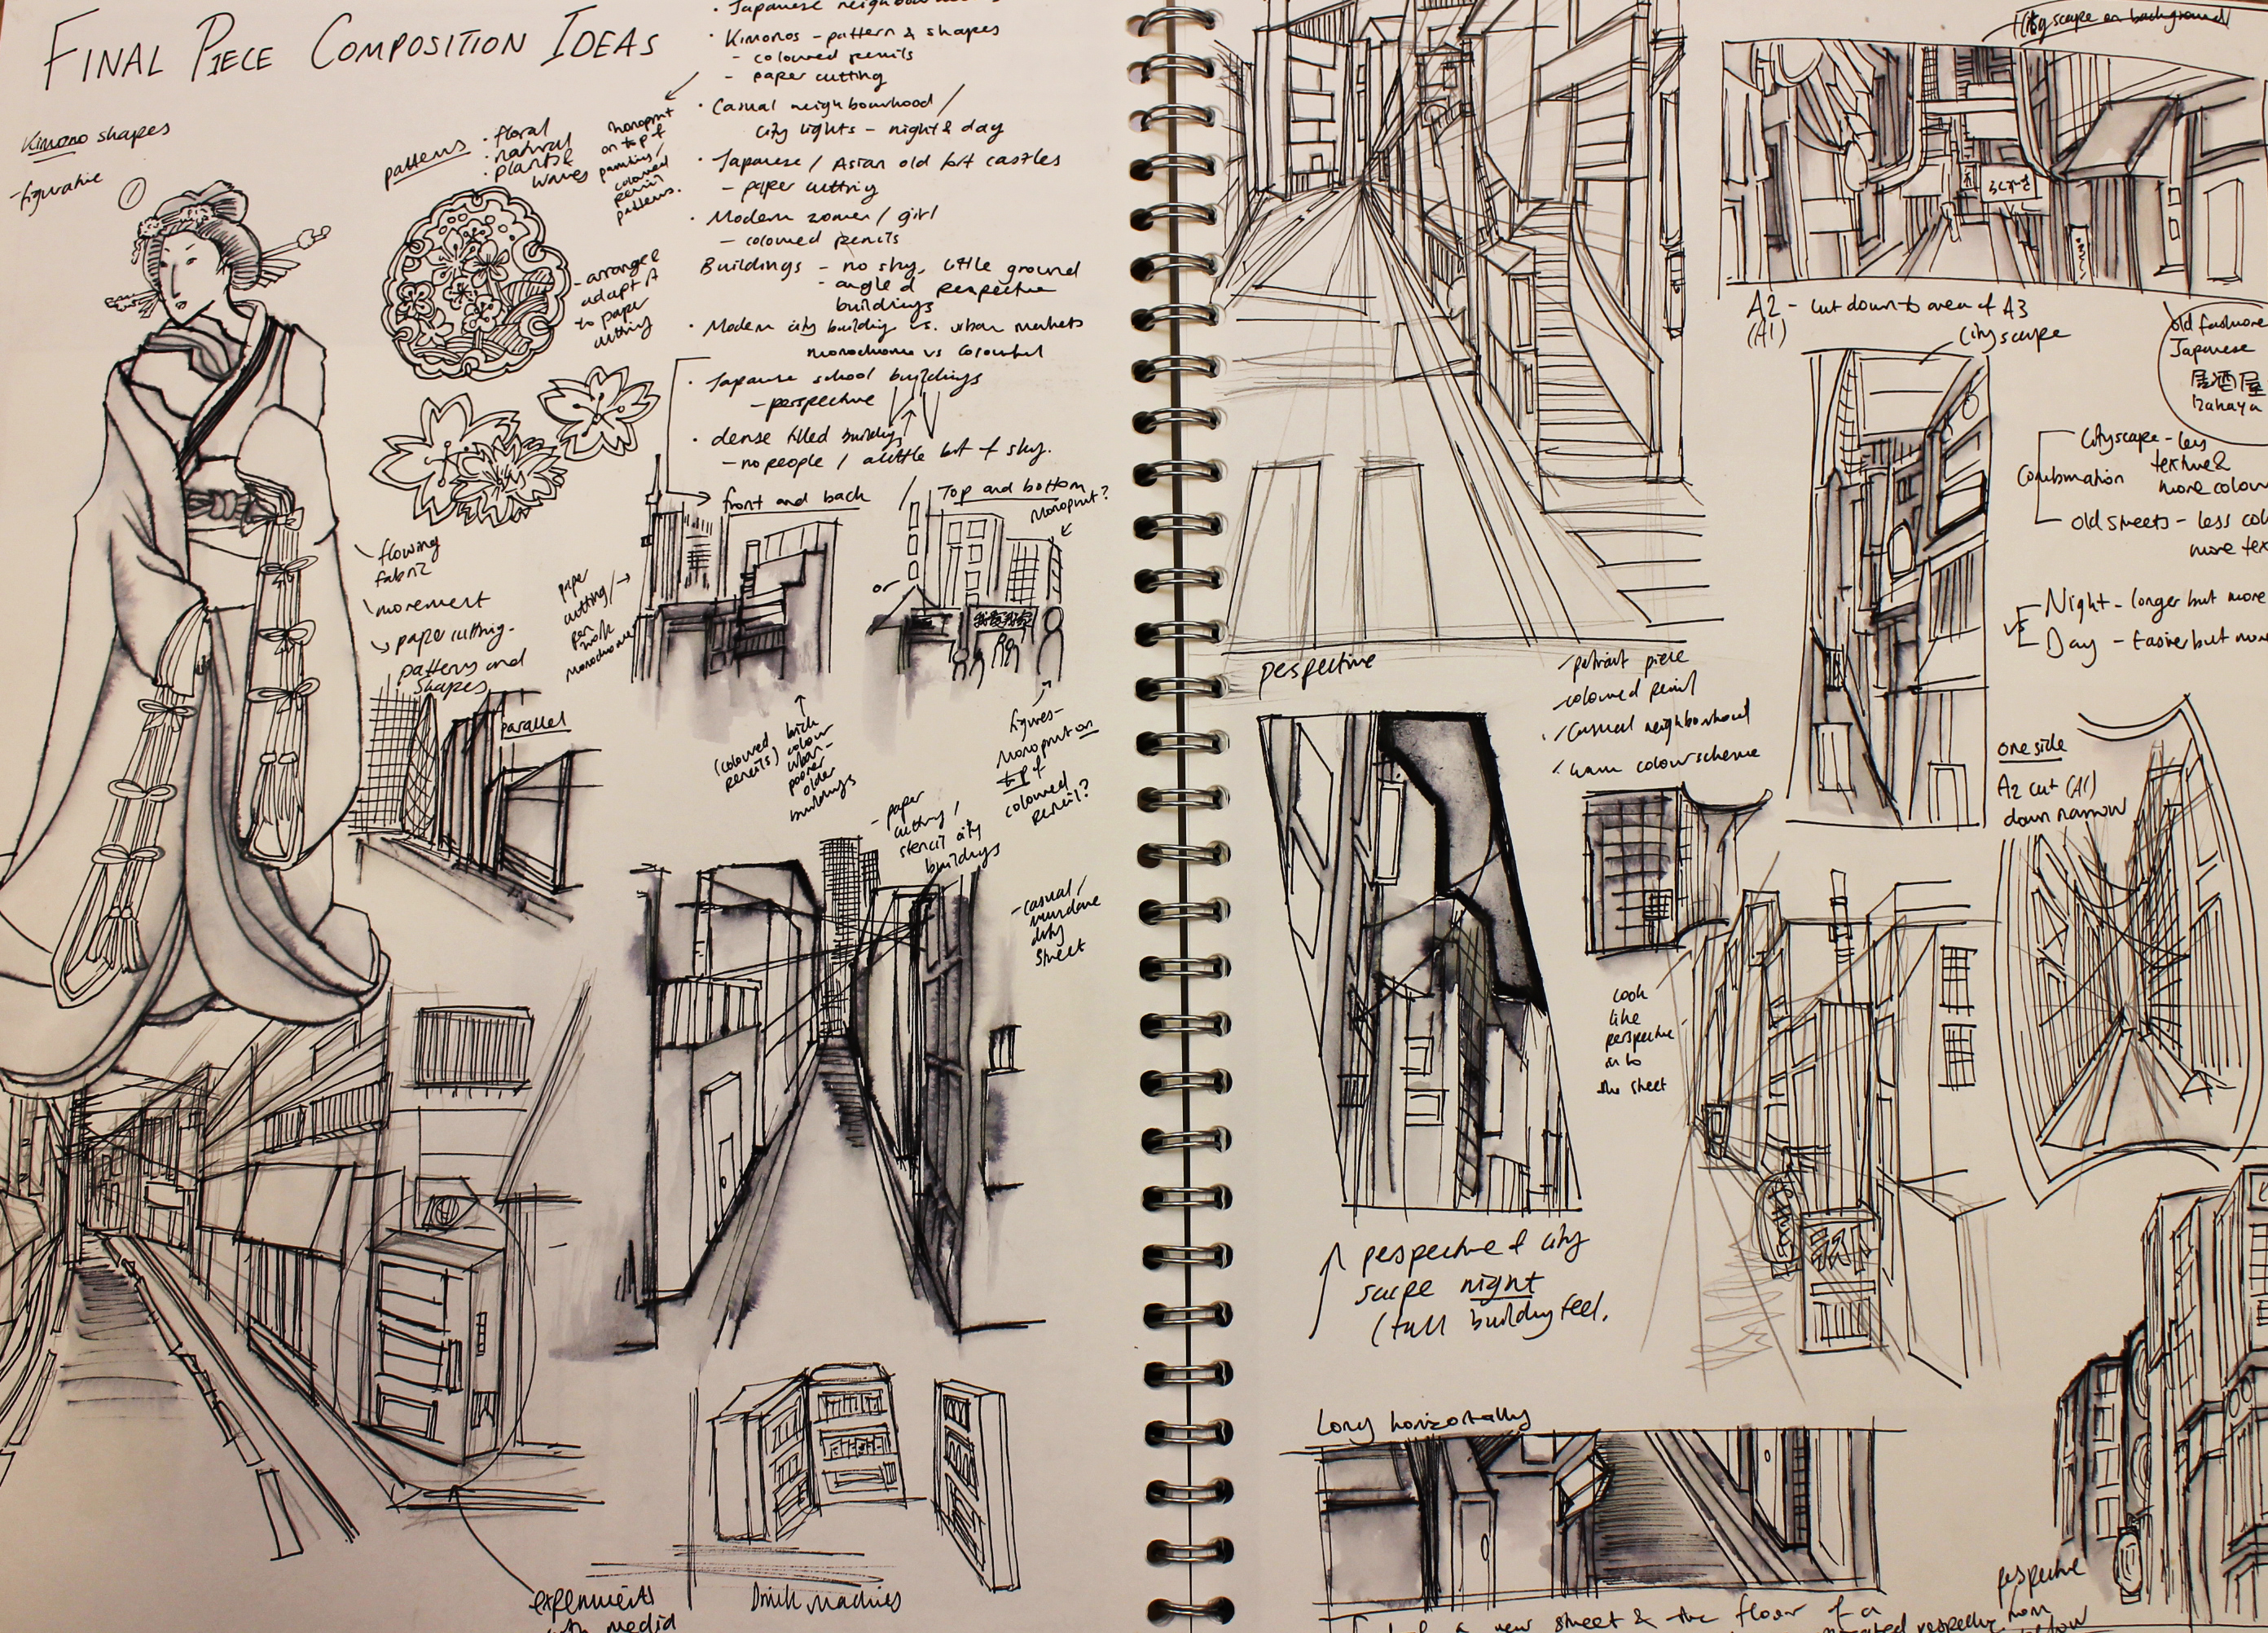 FINAL PIECE COMPOSITION IDEAS
Kimono shapes
- figurative
1
patterns
· floral
· natural
· plants &
waves
monoprint
on top of
painting/
coloured
pencil
patterns.
- arrange &
adapt it
to paper
cutting
flowing
fabric
movement
paper cutting -
patterns and
shapes
parallel
· Japanese
· Kimonos - pattern & shapes
- coloured pencils
- paper cutting
· Casual neighbourhood /
city lights - night & day
· Japanese / Asian old castles
- paper cutting
· Modern / girl
- coloured pencils
Buildings - no sky, little ground
- angle & perspective
buildings
· Modern city building vs. urban markets
monochrome vs colourful
· Japanese school buildings
- perspective
· dense filled buildings
- no people / a little bit of sky.
front and back
/
Top and bottom
Monoprint?
or
paper
cutting/
pen
work
monochrome
(coloured
pencils)
older
buildings
figures -
Monoprint on
top of
coloured
pencil?
- paper
cutting /
stencil city
buildings
- casual/
mundane
street
experiments
with media
Drink Machines
perspective
- portrait piece
- coloured pencil
- casual neighbourhood
- warm colour scheme
look
like
perspective
in to
the street
perspective of city
scape night
(tall building feel.
Long horizontally
new street & the floor of a
Cityscape on background
A2 - cut down to area of A3
(A1)
cityscape
old fashioned
Japanese
居酒屋
Izakaya
Combination
Cityscape - less
texture &
more colour
old streets - less
more
vs
Night - longer but more
Day - Easier but
one side
A2 cut (A1)
down narrow
perspective
from
below